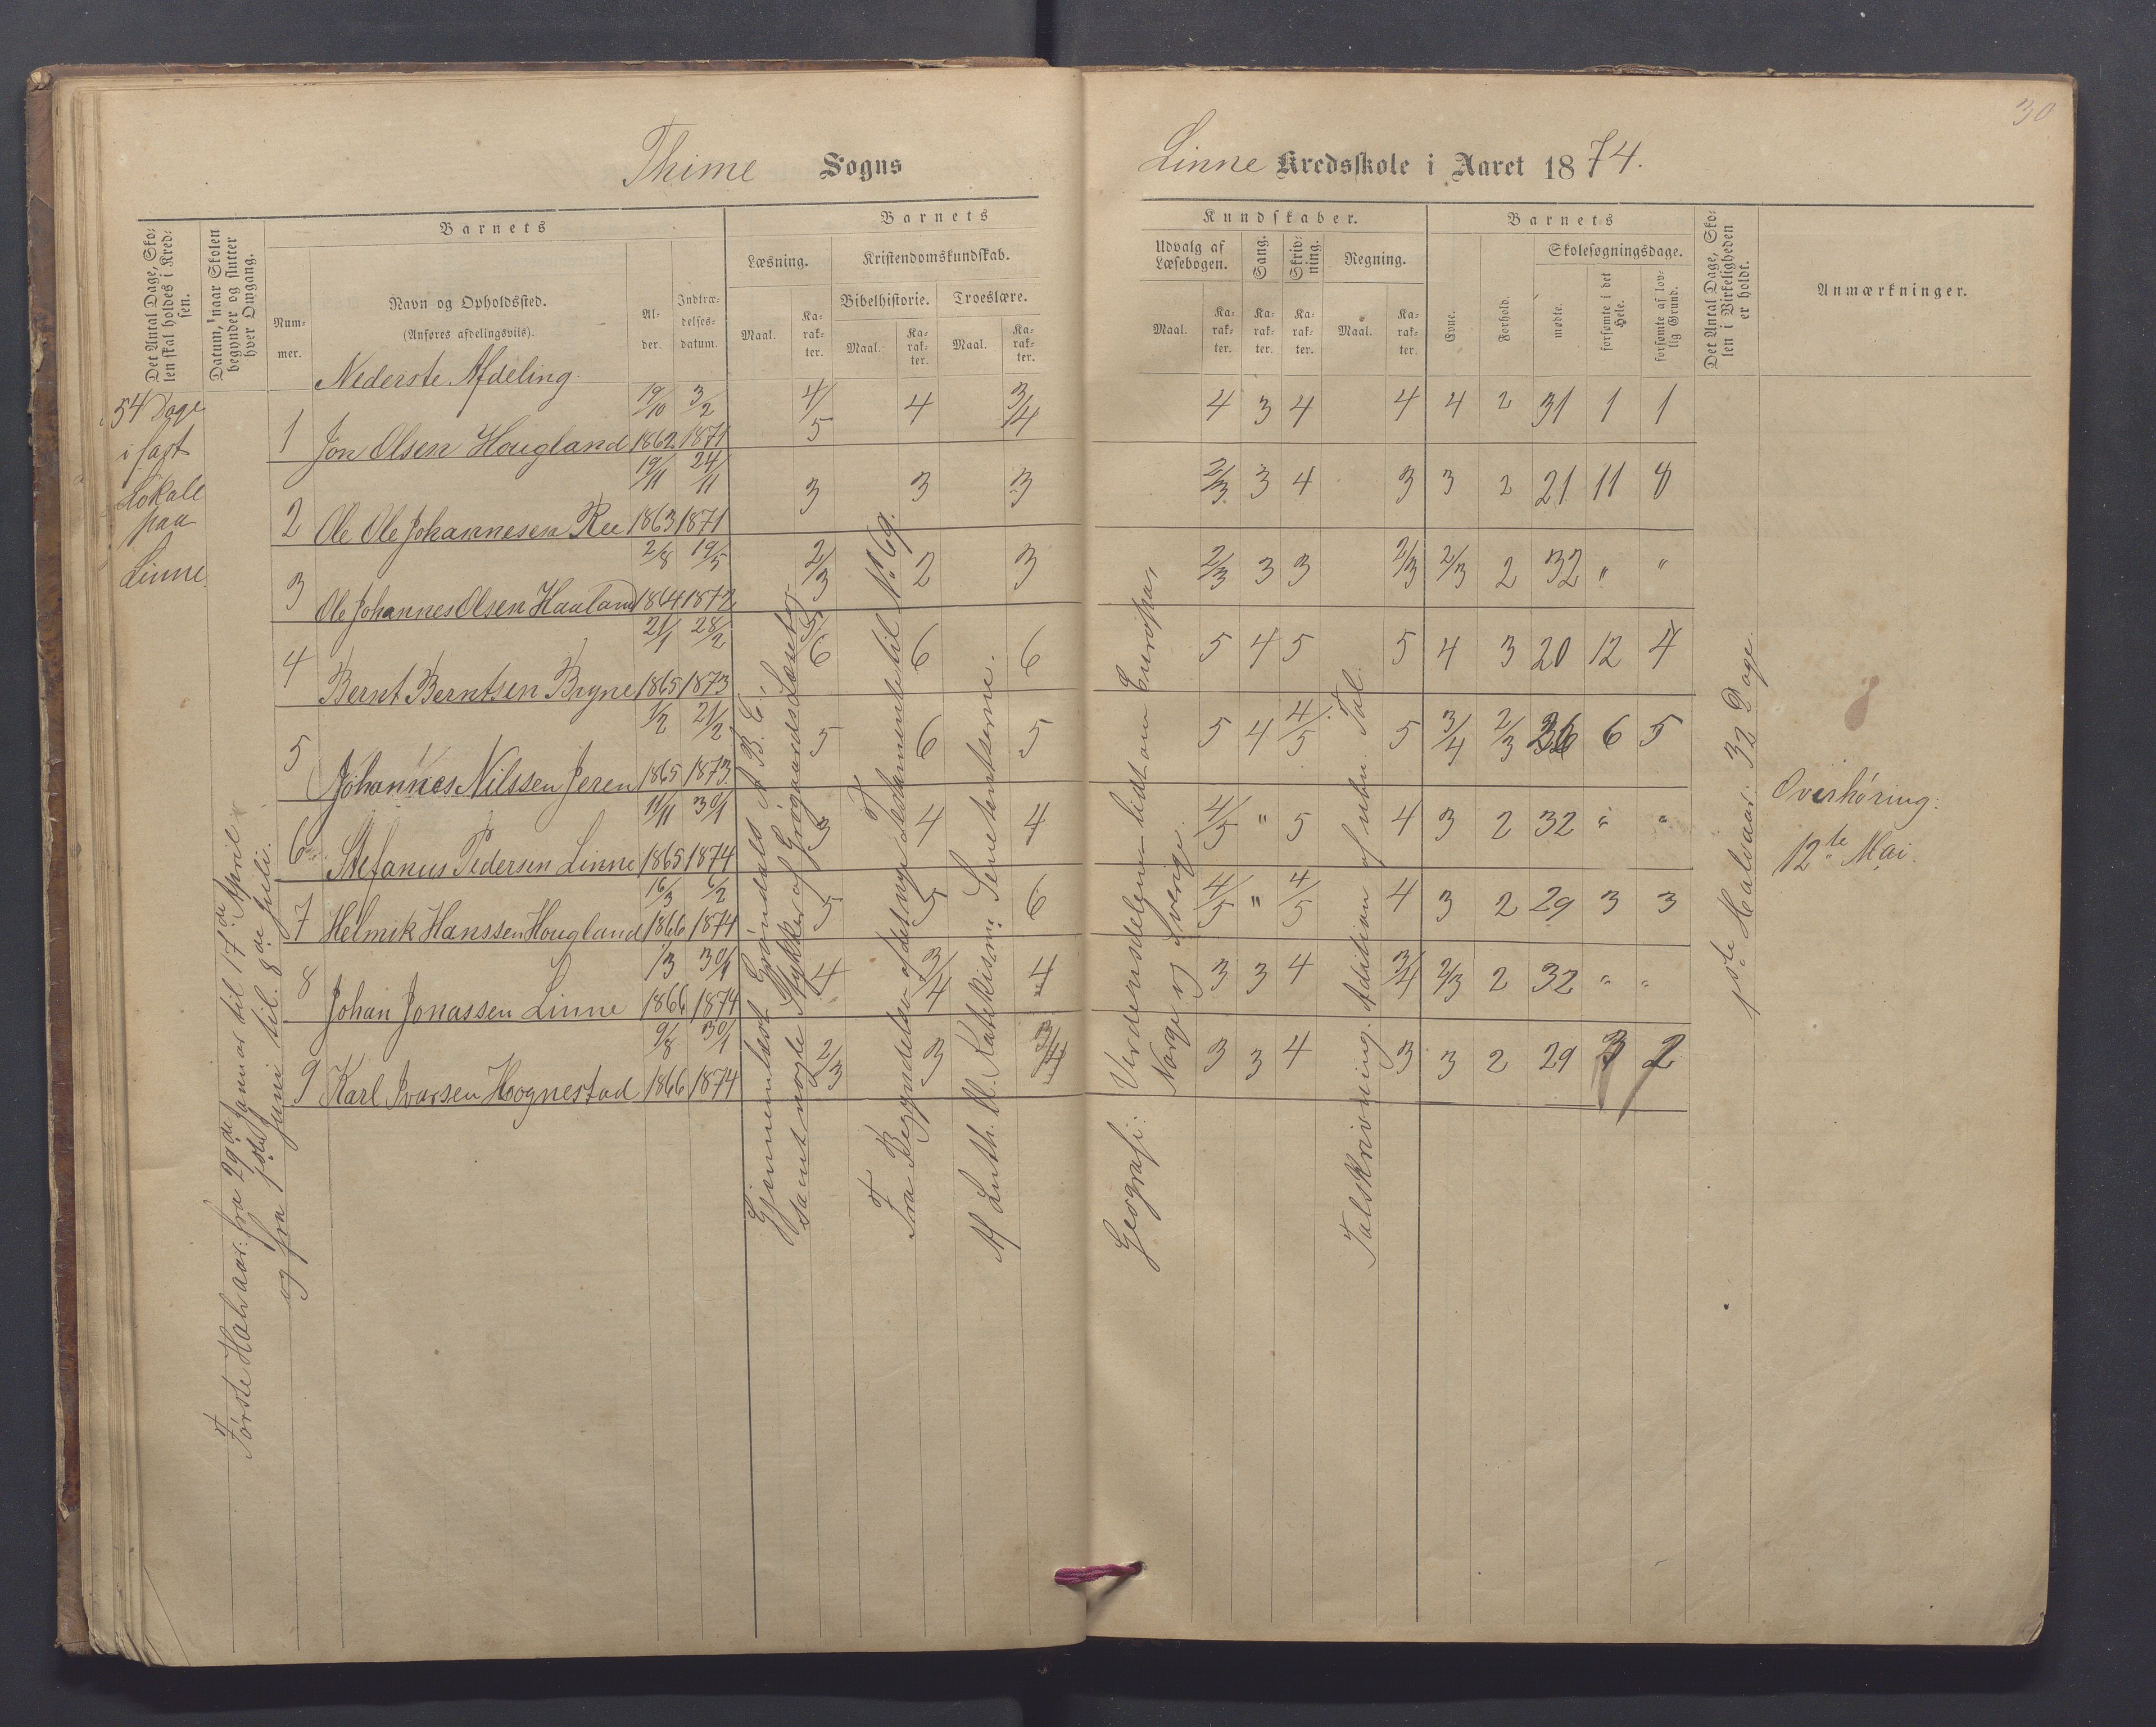 30
Thime Sogns
Linne Kredsskole i Aaret 1874.
Det Antal Dage, Skolen skal holdes i Kredsen.
Datum, naar Skolen begynder og slutter hver Omgang.
Barnets
Nummer.
Navn og Opholdssted.
(Anføres afdelingsviis).
Alder.
Indtrædelsesdatum.
Barnets
Læsning.
Kristendomskundskab.
Bibelhistorie.
Troeslære.
Maal.
Karakter.
Maal.
Karakter.
Maal.
Karakter.
Kundskaber.
Udvalg af Læsebogen.
Sang.
Skrivning.
Regning.
Maal.
Karakter.
Karakter.
Karakter.
Maal.
Karakter.
Barnets
Evne.
Forhold.
Skolesøgningsdage.
mødte.
forsømte i det Hele.
forsømte af lovlig Grund.
Det Antal Dage, Skolen i Virkeligheden er holdt.
Anmærkninger.
Nederste Afdeling.
54 Dage
i fast
Lokale
paa
Linne
1 Jon Olsen Hougland 19/10 1862 3/2 1871 4/5 4 3/4 4 3 4 4 4 2 31 1 1
2 Ole Ole Johannesen Ree 19/11 1863 24/11 1871 3 3 3 2/3 3 4 3 3 2 21 11 8
3 Ole Johannes Olsen Haaland 2/8 1864 19/5 1872 2/3 2 3 2/3 3 3 2/3 2/3 2 32 " "
4 Bernt Berntsen Bryne 21/1 1865 28/2 1873 5/6 6 6 5 4 5 5 4 3 20 12 4
5 Johannes Nilssen Jeren 1/2 1865 21/2 1873 5 6 5 5 4 4/5 5 3/4 2/3 26 6 5
6 Stefanus Pedersen Linne 11/11 1865 30/1 1874 3 4 4 4/5 " 5 4 3 2 32 " "
7 Helmik Hanssen Hougland 16/3 1866 6/2 1874 5 5 6 4/5 " 4/5 4 3 2 29 3 3
8 Johan Jonassen Linne 1/3 1866 30/1 1874 4 3/4 4 3 3 4 3/4 2/3 2 32 " "
9 Karl Ivarsen Hognestad 9/8 1866 30/1 1874 2/3 3 3/4 3 3 4 3 3 2 29 3 2
Første Halvaar: fra 29de Januar til 17de April
og fra 1ste Juni til 8de Juli.
Gjennemlæst Grøndals A B C
samt nogle Stykker af Grøgaards Læsebog
Fra Begyndelsen af det nye Testamente til No 69.
Af Luth. Kl. Katekisme: Senetentserne.
Geografi: Verdensdelene lidt om Europa,
Norge og Sverige.
Talskrivning. Addition af uben. Tal.
1ste Halvaar: 32 Dage.
Overhøring:
12te Mai.